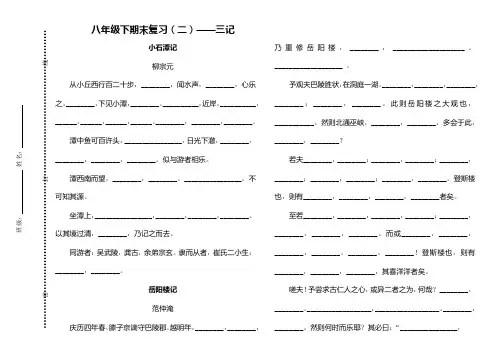 八年级下期末复习（二）——三记
小石潭记
柳宗元
从小丘西行百二十步，________，闻水声，________，心乐
之。________，下见小潭，________。________，近岸，________，
______，______，______，______。______，______，______。
潭中鱼可百许头，________________，日光下澈，________，
________，________，________，似与游者相乐。
潭西南而望，________，________。________________，不
可知其源。
坐潭上，________________，________，________，________。
以其境过清，________，乃记之而去。
同游者：吴武陵，龚古，余弟宗玄。隶而从者，崔氏二小生：
________，________。
岳阳楼记
范仲淹
庆历四年春，滕子京谪守巴陵郡。越明年，________，________，
乃重修岳阳楼，________，________________，
________________。
予观夫巴陵胜状，在洞庭一湖。________，________，________，
________；________，________。此则岳阳楼之大观也，
________。然则北通巫峡，________，________，多会于此，
________，________？
若夫________，________，________，________，________，
________，________，________，________，________。登斯楼
也，则有________，________，________，________者矣。
至若________，________，________，________，________，
________，________，________。而或________，________，
________，________，________，________！登斯楼也，则有
________，________，________，其喜洋洋者矣。
嗟夫！予尝求古仁人之心，或异二者之为，何哉？________，
________，________________，________________，________，
________。然则何时而乐耶？其必曰：“________________，
班级：
姓名：